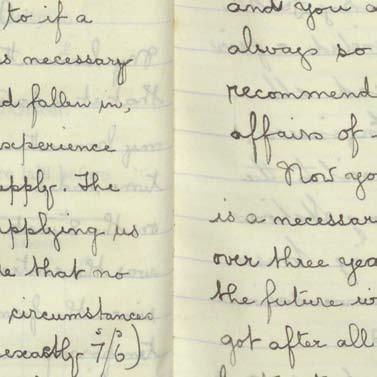 to if a
s necessary
d fallen in,
experience
upply. The
pplying us
e that no
circumstances
exactly 7/6)
and you a
always so
recommend
affairs of
Now yo
is a necessar
over three yea
the future w
got after all